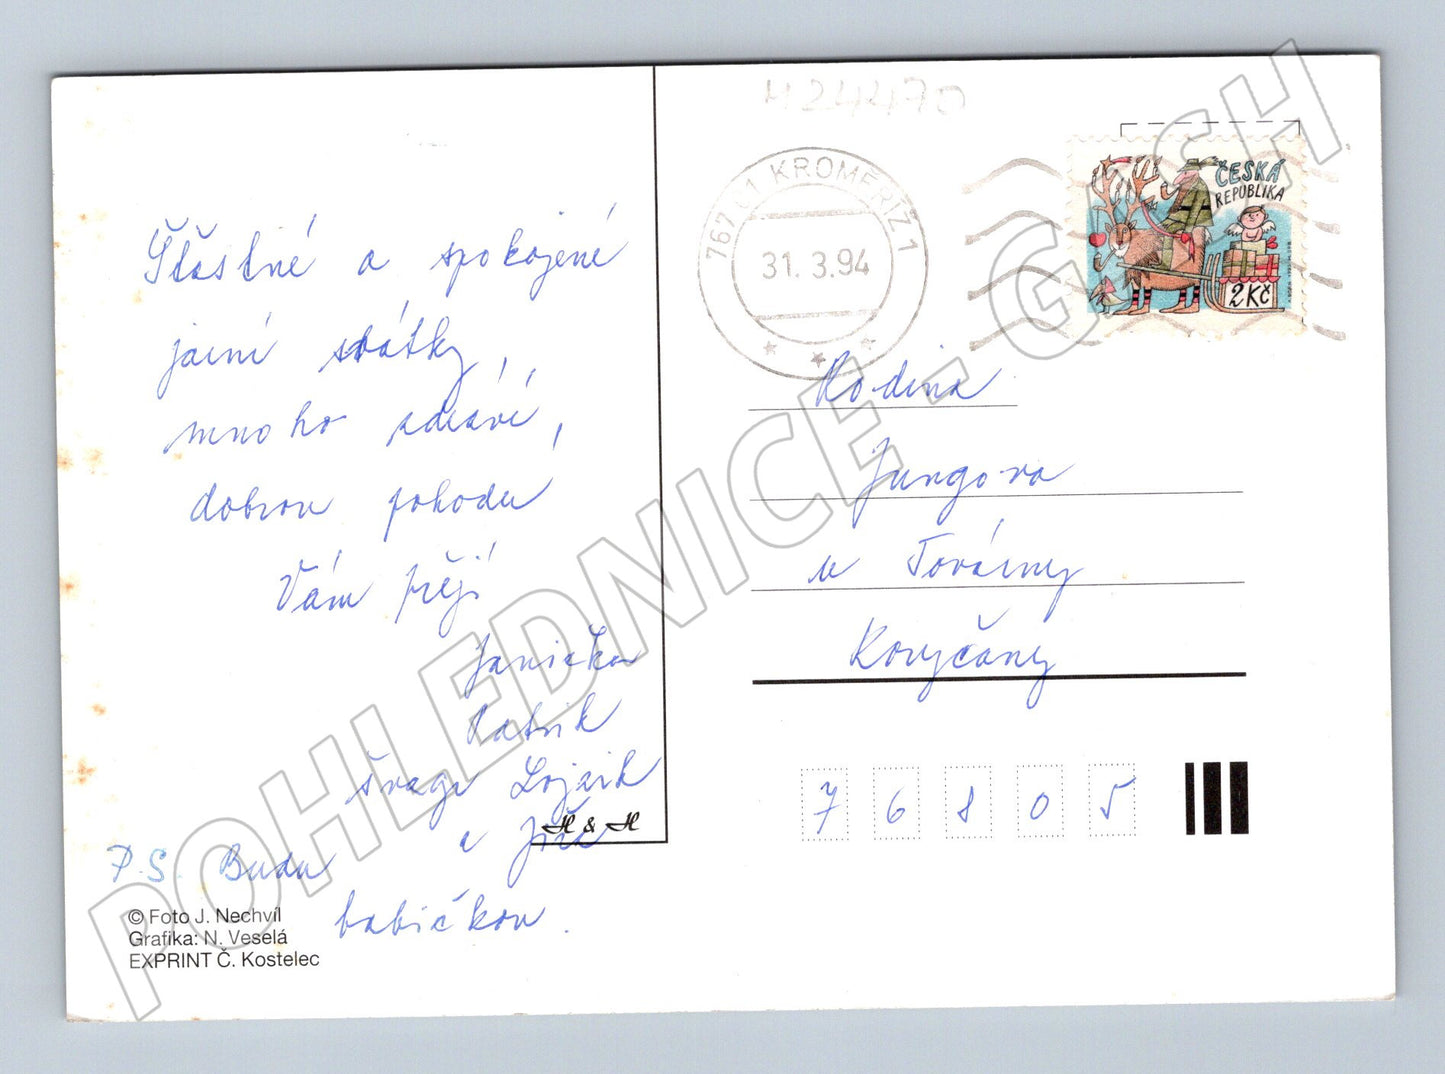 Šťastné a spokojené
jarní svátky,
mnoho zdraví,
dobrou pohodu
Vám přejí
Janička
Patrik
švagr Lojzík
a Jiří
P.S. Budu
babičkou.
H & H
© Foto J. Nechvíl
Grafika: N. Veselá
EXPRINT Č. Kostelec
M24470
767 01 KROMĚŘÍŽ 1
31. 3.94
ČESKÁ
REPUBLIKA
2 KČ
Rodina
Jungova
u Továrny
Koryčany
7 6 8 0 5
POHLEDNICE - G-ASH